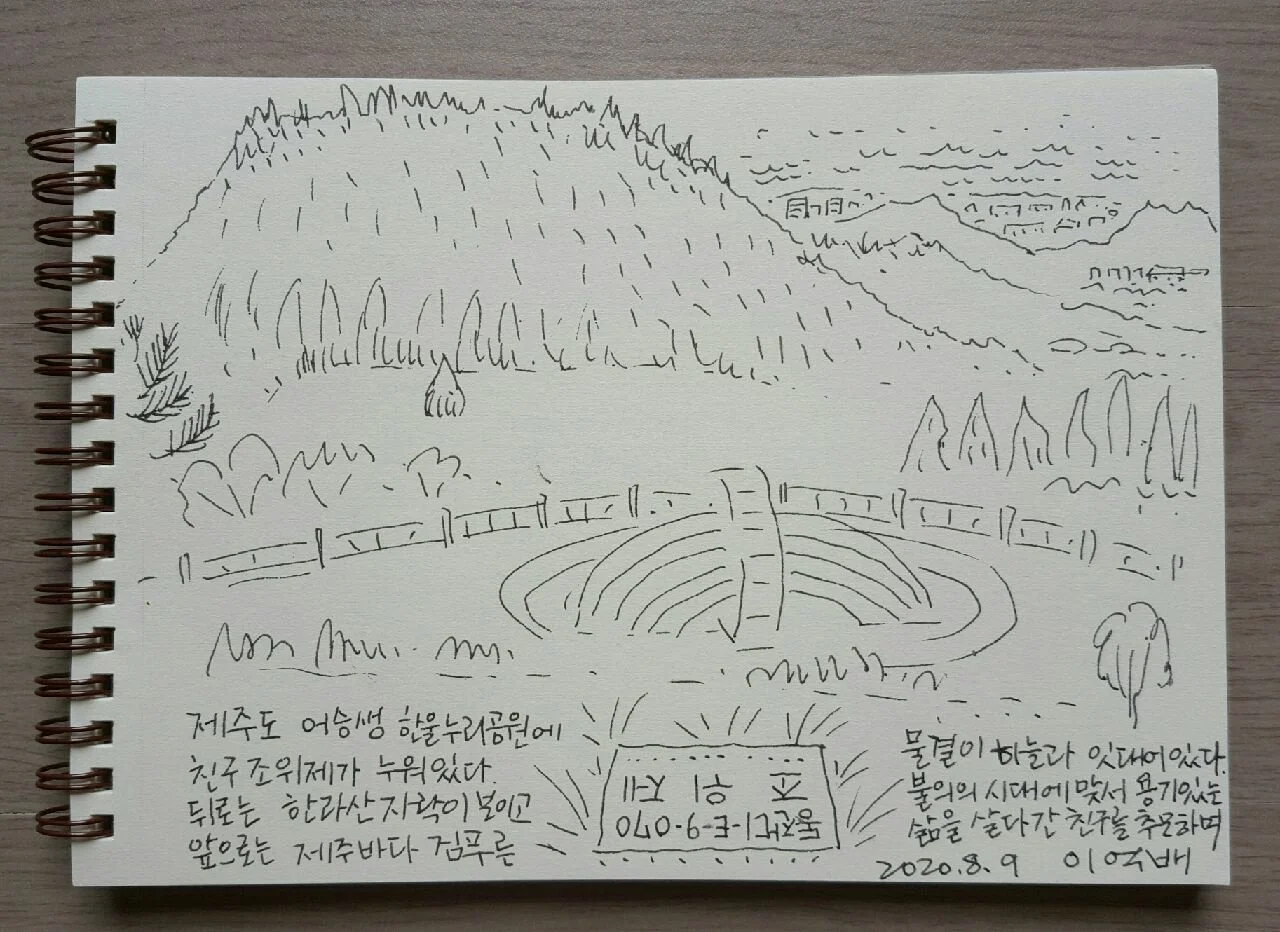 제주도 어승생 한울누리공원에
친구 조위제가 누워있다.
뒤로는 한라산 자락이 보이고
앞으로는 제주바다 검푸른
동잔디-E-9-070
조 위 제
물결이 하늘과 잇대어있다.
불의의 시대에 맞서 용기있는
삶을 살다간 친구를 추모하며
2020.8.9 이억배